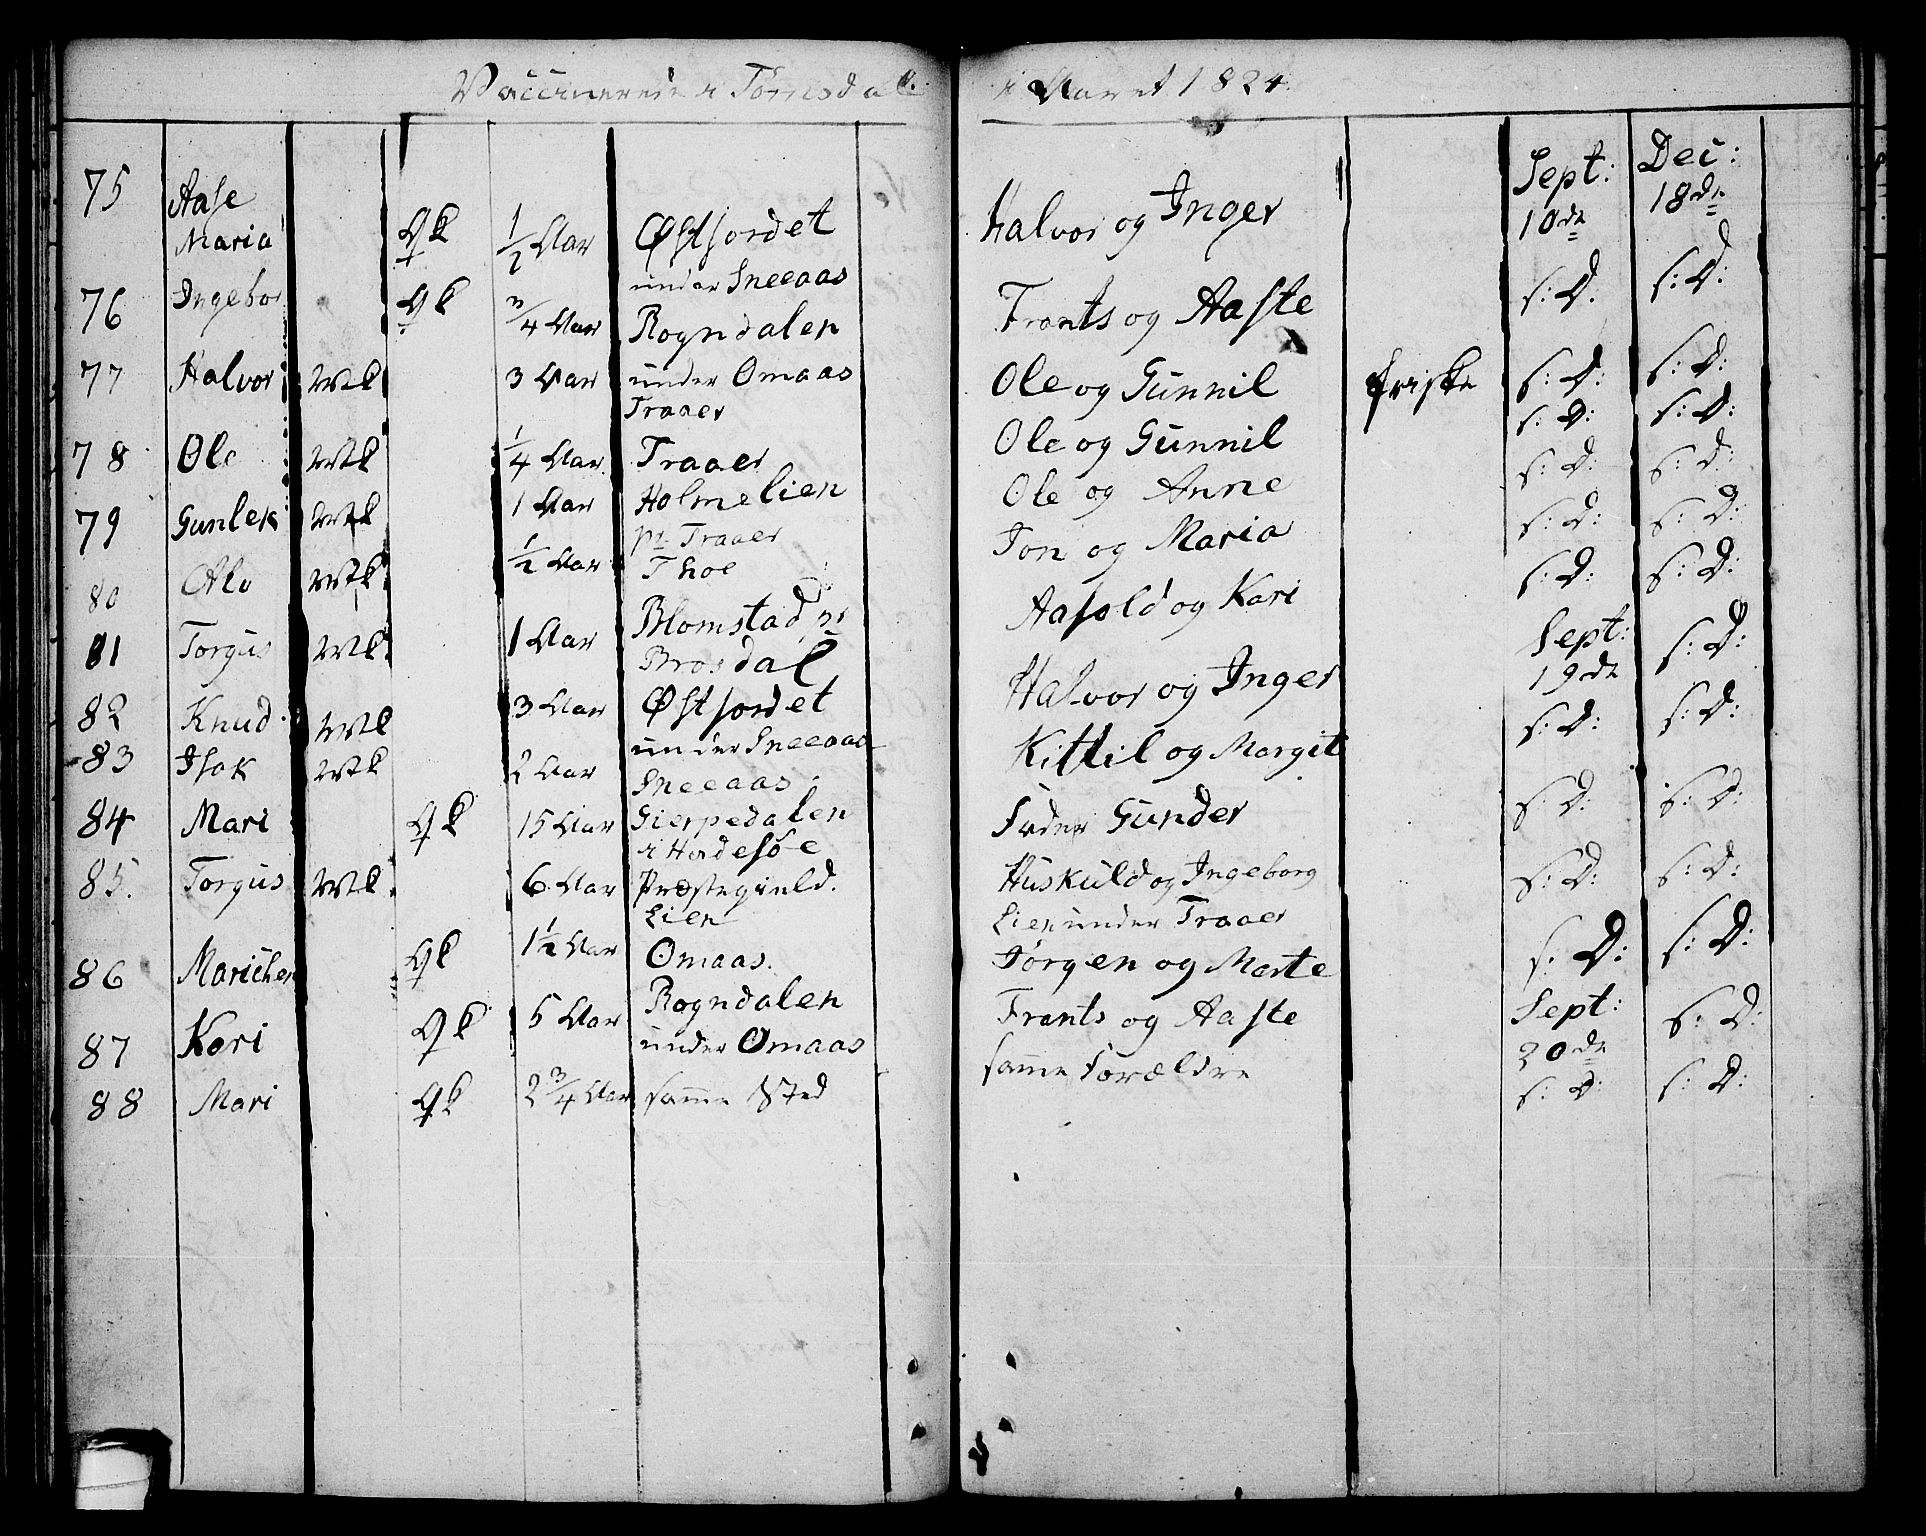 Vaccinerede i Tørrisdal i Aaret 1824
Sept: Dec:
75 Aase Halvor og Inger 10de 18de
Maria Qk 1/2 Aar Østjordet
under Sneeaas
76 Ingebor Qk 3/4 Aar Rogndalen Frants og Aaste s: D. s: D:
77 Halvor Mk 3 Aar under Omaas Ole og Gunnil friske s: D: s: D:
Traaer
78 Ole Mk 1/4 Aar Traaer Ole og Gunnil s: D: s: D:
79 Gunlek Mk 1 Aar Holmelien Ole og Anne s: D: s: D:
Traaer
80 Mk 1/2 Aar Thoe Jon og Maria s: D: s: D:
81 Torgus Mk 1 Aar Blomstad Aasold og Kari s: D: s: D:
Brosdal
Sept:
82 Knud Mk 3 Aar Østjordet Halvor og Inger 19de s: D:
under Sneeaas
83 Isak Mk 2 Aar Sneeaas Kittil og Margit s: D: s: D:
84 Mari Qk 15 Aar Gierpedalen Fader Gunder s: D: s: D:
i Hvidesøe
85. Torgus Mk. 6 Aar Præstegield. Huskuld og Ingeborg s: D: s: D:
Lien Lien under Traaer
86 Marichen Qk 1 1/2 Aar Omaas. Jørgen og Marte s: D: s: D:
87 Kari Qk 5 Aar Rogndalen Frants og Aaste Sept: s: D:
under Omaas 20de
88 Mari Qk 2 3/4 Aar samme Sted samme Forældre s: D: s: D: